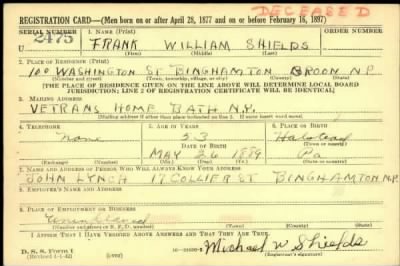 DECEASED
REGISTRATION CARD—(Men born on or after April 28, 1877 and on or before February 16, 1897)
SERIAL NUMBER 1. NAME (Print) ORDER NUMBER
U 2475 FRANK WILLIAM SHIELDS
(First) (Middle) (Last)
2. PLACE OF RESIDENCE (Print)
100 WASHINGTON ST BINGHAMTON BROON N.P.
(Number and street) (Town, township, village, or city) (County) (State)
[THE PLACE OF RESIDENCE GIVEN ON THE LINE ABOVE WILL DETERMINE LOCAL BOARD
JURISDICTION; LINE 2 OF REGISTRATION CERTIFICATE WILL BE IDENTICAL]
3. MAILING ADDRESS
VETRANS HOME BATH N.Y.
[Mailing address if other than place indicated on line 2. If same insert word same]
4. TELEPHONE 5. AGE IN YEARS 6. PLACE OF BIRTH
None 53 Halstead
DATE OF BIRTH (Town or county)
MAY 26 1889 Pa
(Exchange) (Number) (Mo.) (Day) (Yr.) (State or country)
7. NAME AND ADDRESS OF PERSON WHO WILL ALWAYS KNOW YOUR ADDRESS
JOHN LYNCH 17 COLLIER ST BINGHAMTON N.P.
8. EMPLOYER'S NAME AND ADDRESS
9. PLACE OF EMPLOYMENT OR BUSINESS
(Number and street or R. F. D. number) (Town) (County) (State)
I AFFIRM THAT I HAVE VERIFIED ABOVE ANSWERS AND THAT THEY ARE TRUE.
D. S. S. Form 1
(Revised 4-1-42) (over) Michael W Shields
(Registrant's signature)